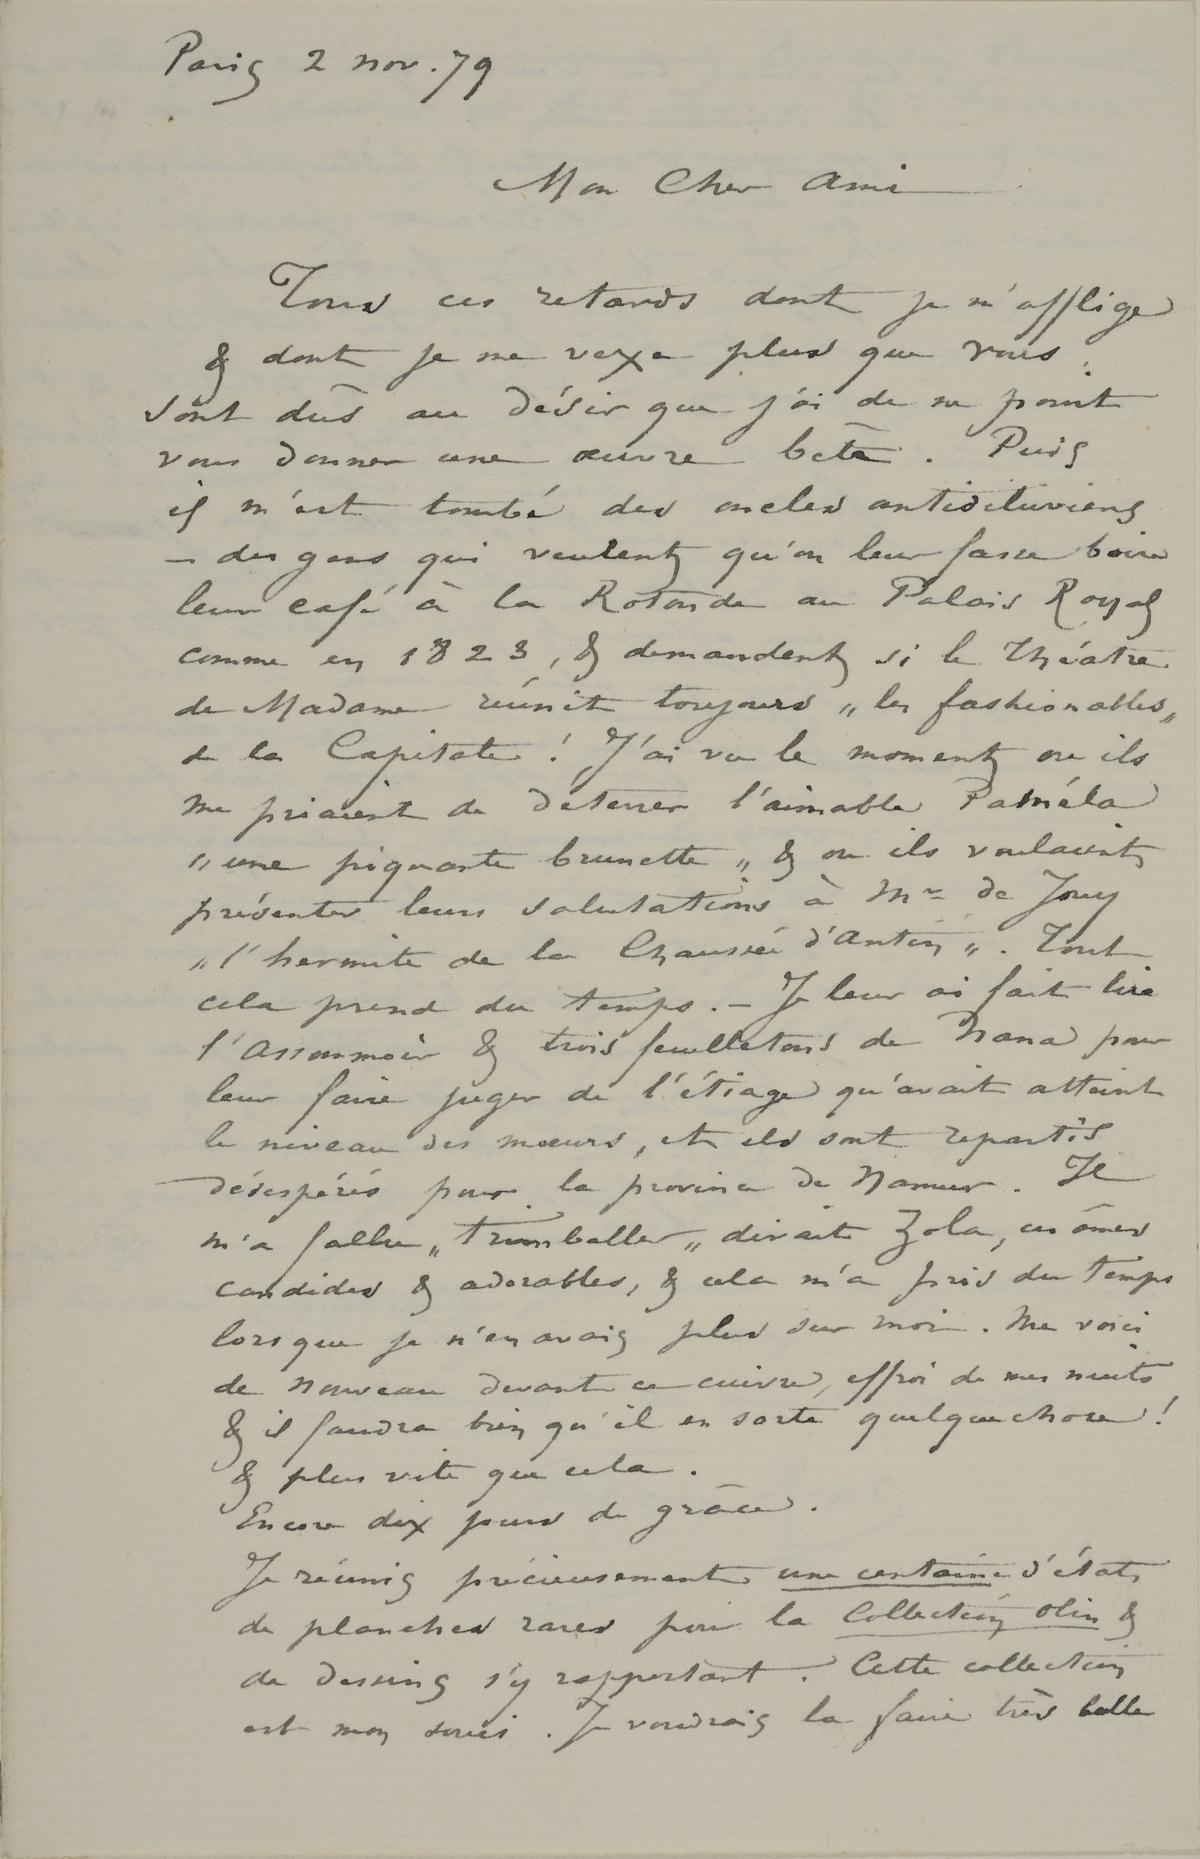 Paris 2 nov. 79
Mon Cher Ami
Tous ces retards dont je m'afflige
& dont je me vexe plus que vous,
sont dûs au désir que j'ai de ne point
vous donner une œuvre bête. Puis
il m'est tombé des oncles antidiluviens
– des gens qui veulent qu'on leur fasse boire
leur café à la Rotonde au Palais Royal
comme en 1823, & demandent si le Théâtre
de Madame réunit toujours „les fashionables„
de la Capitale ! J'ai vu le moment ou ils
me priaient de déterrer l'aimable Paméla
„une piquante brunette„ & ou ils voulaient
présenter leurs salutations à Mr de Jouy
„l'hermite de la Chaussée d'Antin„. Tout
cela prend du temps. – Je leur ai fait lire
l'Assommoir & trois feuilletons de Nana pour
leur faire juger de l'étiage qu'avait atteint
le niveau des mœurs, et ils sont repartis
désespérés pour la province de Namur. Il
m'a fallu „trimballer„ dirait Zola, ces âmes
candides & adorables, & cela m'a pris du temps
lorsque je n'en avais plus sur moi. Me voici
de nouveau devant ce cuivre, effroi de mes nuits
& il faudra bien qu'il en sorte quelquechose !
& plus vite que cela.
Encore dix jours de grâce.
Je réunis précieusement une centaine d'états
de planches rares pour la Collection Olin &
de dessins s'y rapportant. Cette collection
est mon souci. Je voudrais la faire très belle